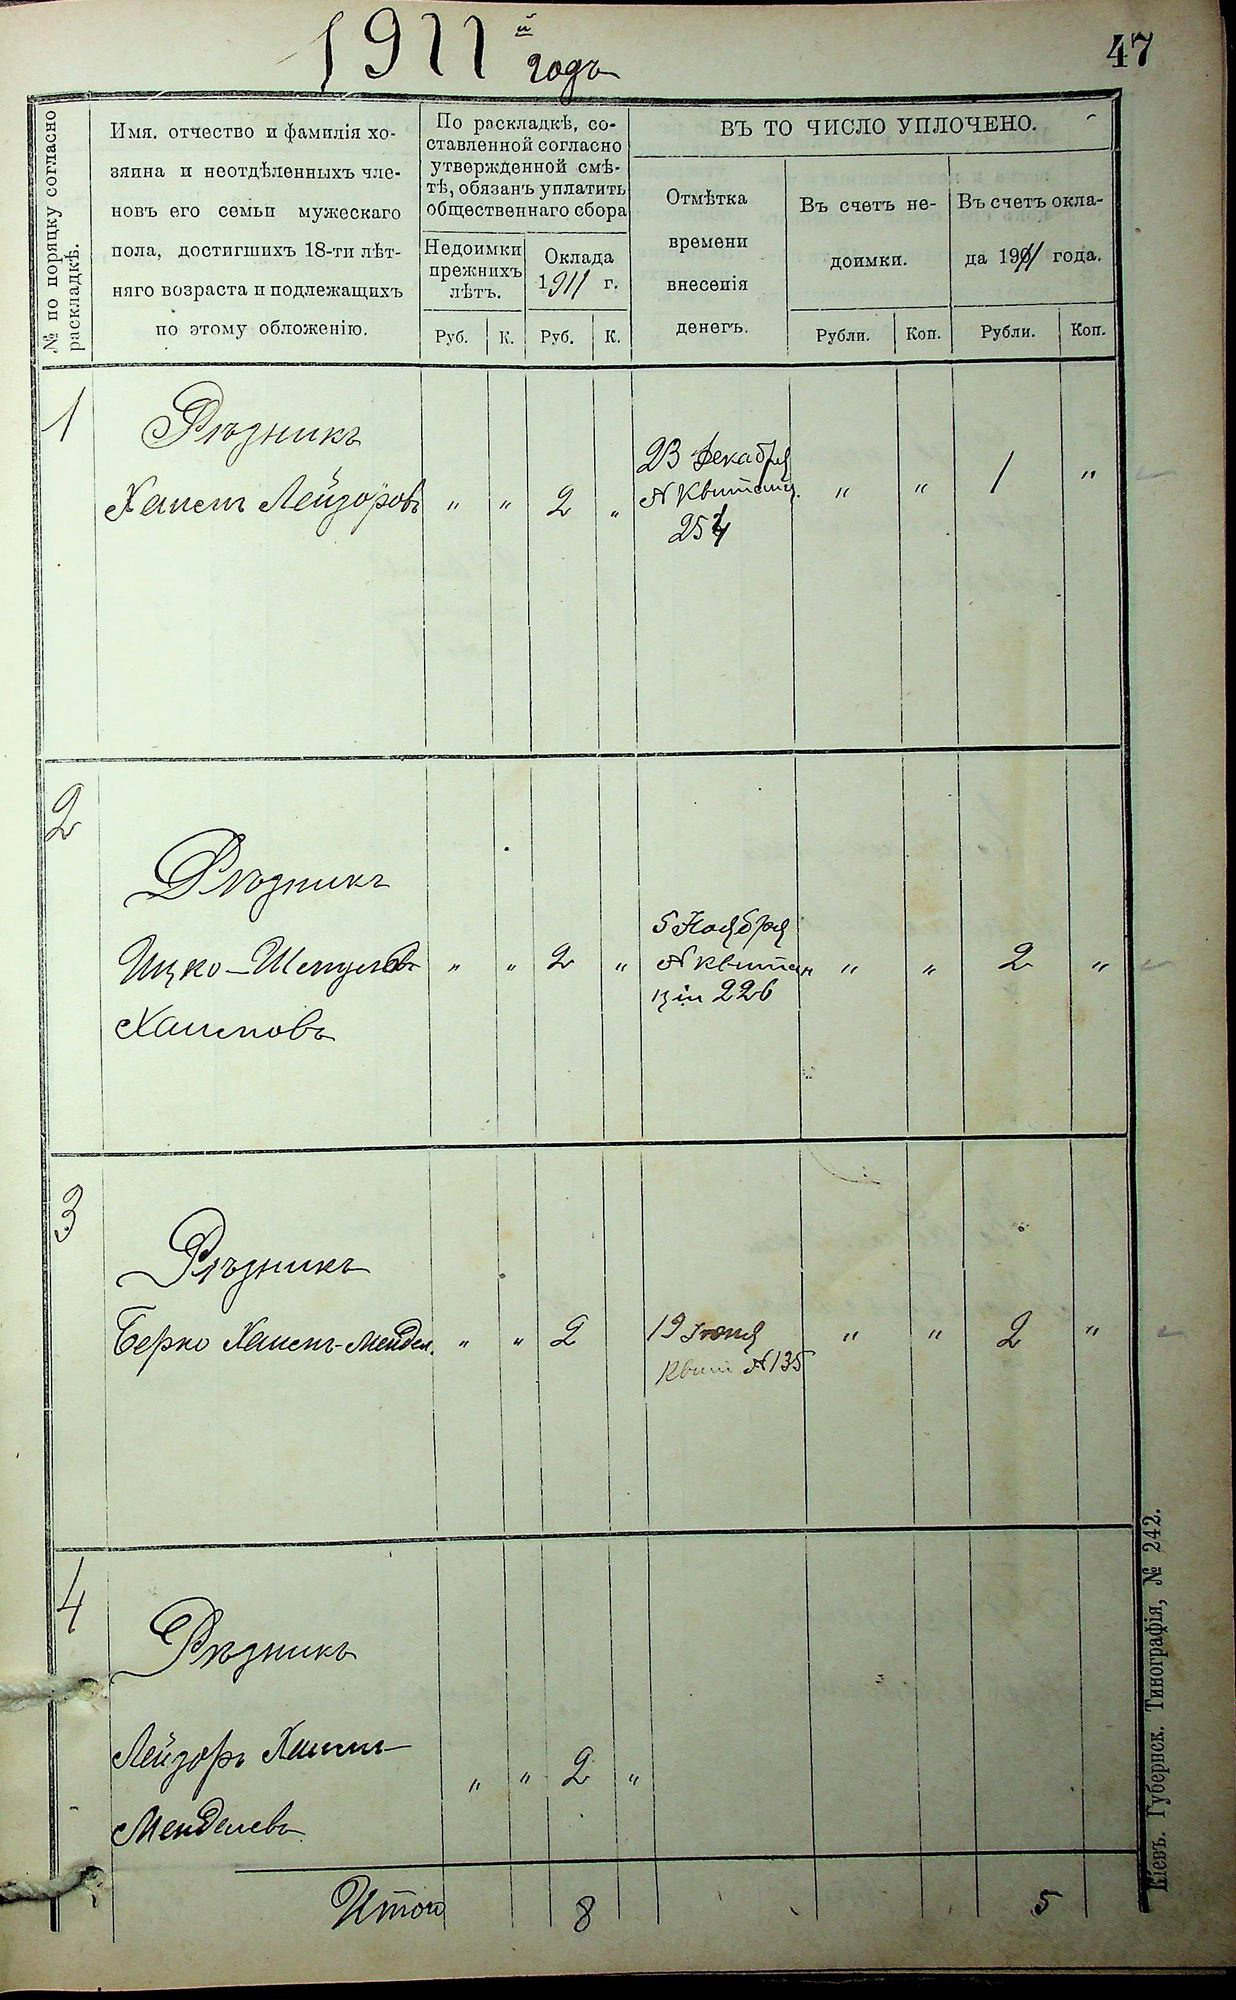 1911й годъ
47
№ по поряцку согласно
раскладкѣ.
Имя. отчество и фамилія хо-
зяина и неотдѣленныхъ чле-
новъ его семьи мужескаго
пола, достигшихъ 18-ти лѣт-
няго возраста и подлежащихъ
по этому обложенію.
По раскладкѣ, со-
ставленной согласно
утвержденной смѣ-
тѣ, обязанъ уплатить
общественнаго сбора
Недоимки
прежнихъ
лѣтъ.
Оклада
1911 г.
Руб. К. Руб. К.
ВЪ ТО ЧИСЛО УПЛОЧЕНО.
Отмѣтка
времени
внесенія
денегъ.
Въ счетъ не-
доимки.
Въ счетъ окла-
да 1911 года.
Рубли. Коп. Рубли. Коп.
1
Рѣзникъ
23 Декабря
Хаимъ Лейзоровъ " " 2 " № Квитанц. " " 1 "
254
2
Рѣзникъ
5 Ноября
Ицко-Шмулевъ " " 2 " № квитан " " 2 "
Хаимовъ
ціи 226
3
Рѣзникъ
Берко Хаимъ-Мендел. " " 2 19 Іюня " " 2 "
Квит №135
4
Рѣзникъ
Лейзоръ Хаимъ-
" " 2 "
Менделевъ
Итого 8 5
Кіевъ. Губернск. Типографія, № 242.